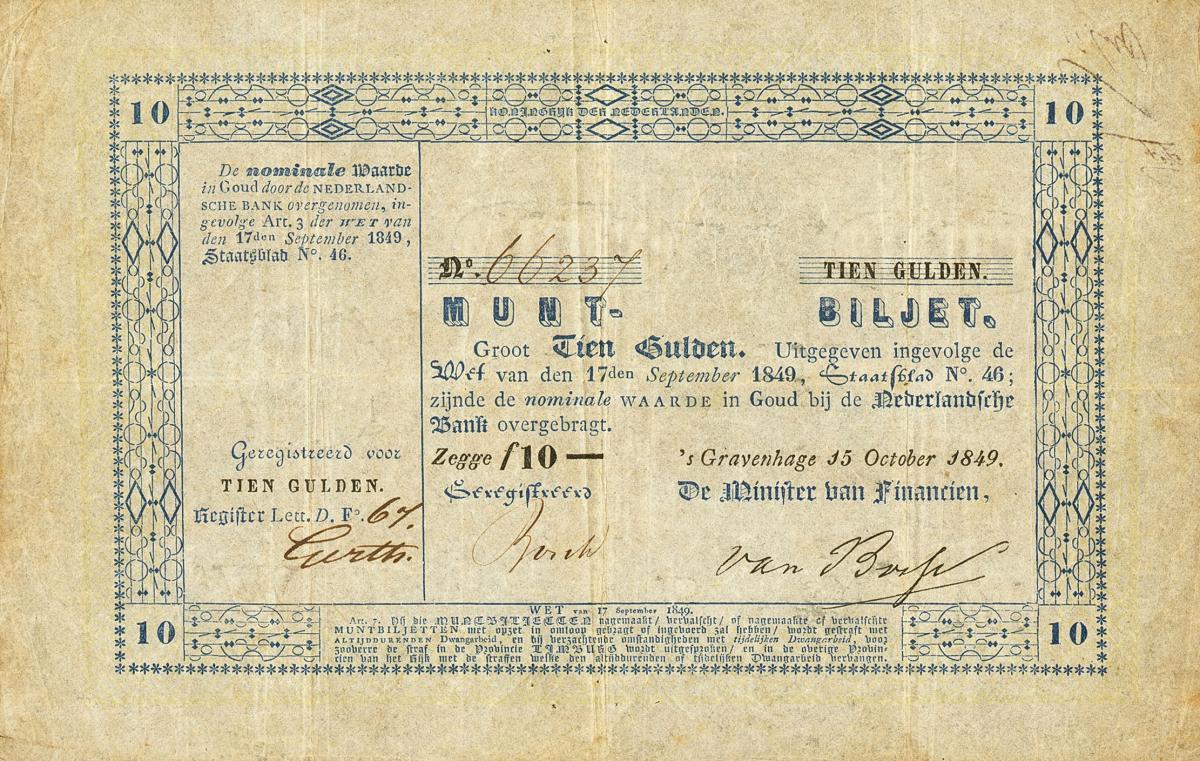 10
KONINGRIJK DER NEDERLANDEN.
10
De nominale Waarde
in Goud door de NEDERLAND-
SCHE BANK overgenomen, in-
gevolge Art. 3 der WET van
den 17den September 1849,
Staatsblad No. 46.
Geregistreerd voor
TIEN GULDEN.
Register Lett. D. Fo. 67.
No. 66237
TIEN GULDEN.
MUNT- BILJET.
Groot Tien Gulden. Uitgegeven ingevolge de
Wet van den 17den September 1849, Staatsblad No. 46;
zijnde de nominale WAARDE in Goud bij de Nederlandsche
Bank overgebragt.
Zegge f 10 —
's Gravenhage 15 October 1849.
Geregistreerd
De Minister van Financien,
van Bosse
10
WET van 17 September 1849.
Art. 7. Hij die MUNTBILJETTEN nagemaakt/ vervalscht/ of nagemaakte of vervalschte
MUNTBILJETTEN met opzet in omloop gebragt of ingevoerd zal hebben/ wordt gestraft met
ALTIJDDURENDEN Dwangarbeid, en bij verzachtende omstandigheden met tijdelijken Dwangarbeid, voor
zooverre de straf in de Provincie LIMBURG wordt uitgesproken/ en in de overige Provin-
cien van het Rijk met de straffen welke den altijddurenden of tijdelijken Dwangarbeid vervangen.
10